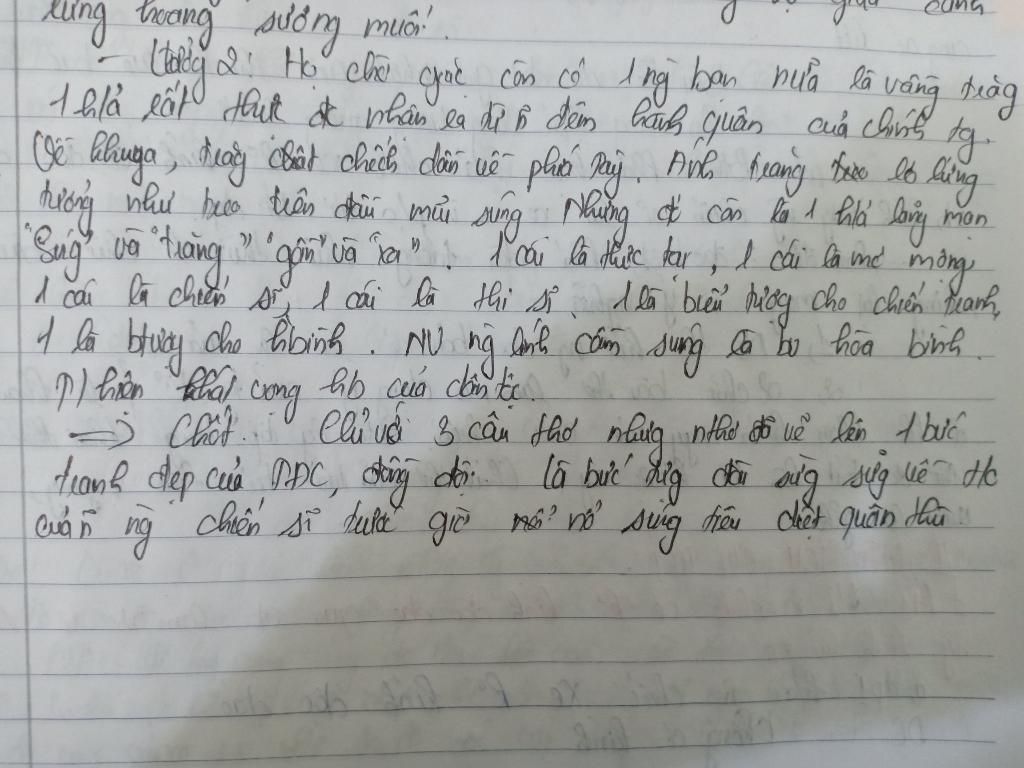 rừng hoang sương muối!
- Tưởng 2: Họ chờ giặc còn có 1 ng bạn nữa là vầng trăng
1 h/ả rất thực đc nhận ra từ ~ đêm hành quân của chính tg.
Về khuya, trăng chếch dần về phía tây. Ánh trăng treo lơ lửng
tưởng như treo trên đầu mũi súng Nhưng đ còn là 1 h/ả lãng mạn
"Súng" và "trăng" "gần" và "xa". 1 cái là thực tại, 1 cái là mơ mộng,
1 cái là chiến sĩ, 1 cái là thi sĩ. 1 là biểu tượng cho chiến tranh,
1 là btượng cho hbình. NV ng lính cầm súng là bv hòa bình.
hiện khát vọng hb của dân tộc.
=> Chốt: Chỉ với 3 câu thơ nhưng nthơ đã vẽ lên 1 bức
tranh đẹp của TĐC, đồng đội. Là bức tượng đài sừng sững về
của ~ ng chiến sĩ trước giờ nổ súng tiêu diệt quân thù